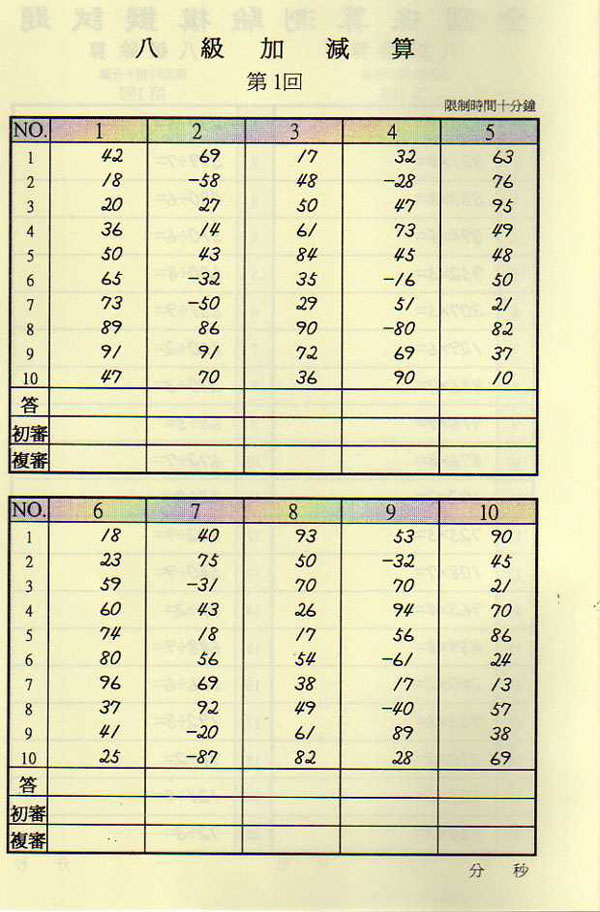 八級加減算
第1回
限制時間十分鐘
NO. 1 2 3 4 5
1 42 69 17 32 63
2 18 -58 48 -28 76
3 20 27 50 47 95
4 36 14 61 73 49
5 50 43 84 45 48
6 65 -32 35 -16 50
7 73 -50 29 51 21
8 89 86 90 -80 82
9 91 91 72 69 37
10 47 70 36 90 10
答
初審
複審
NO. 6 7 8 9 10
1 18 40 93 53 90
2 23 75 50 -32 45
3 59 -31 70 70 21
4 60 43 26 94 70
5 74 18 17 56 86
6 80 56 54 -61 24
7 96 69 38 17 13
8 37 92 49 -40 57
9 41 -20 61 89 38
10 25 -87 82 28 69
答
初審
複審
分 秒